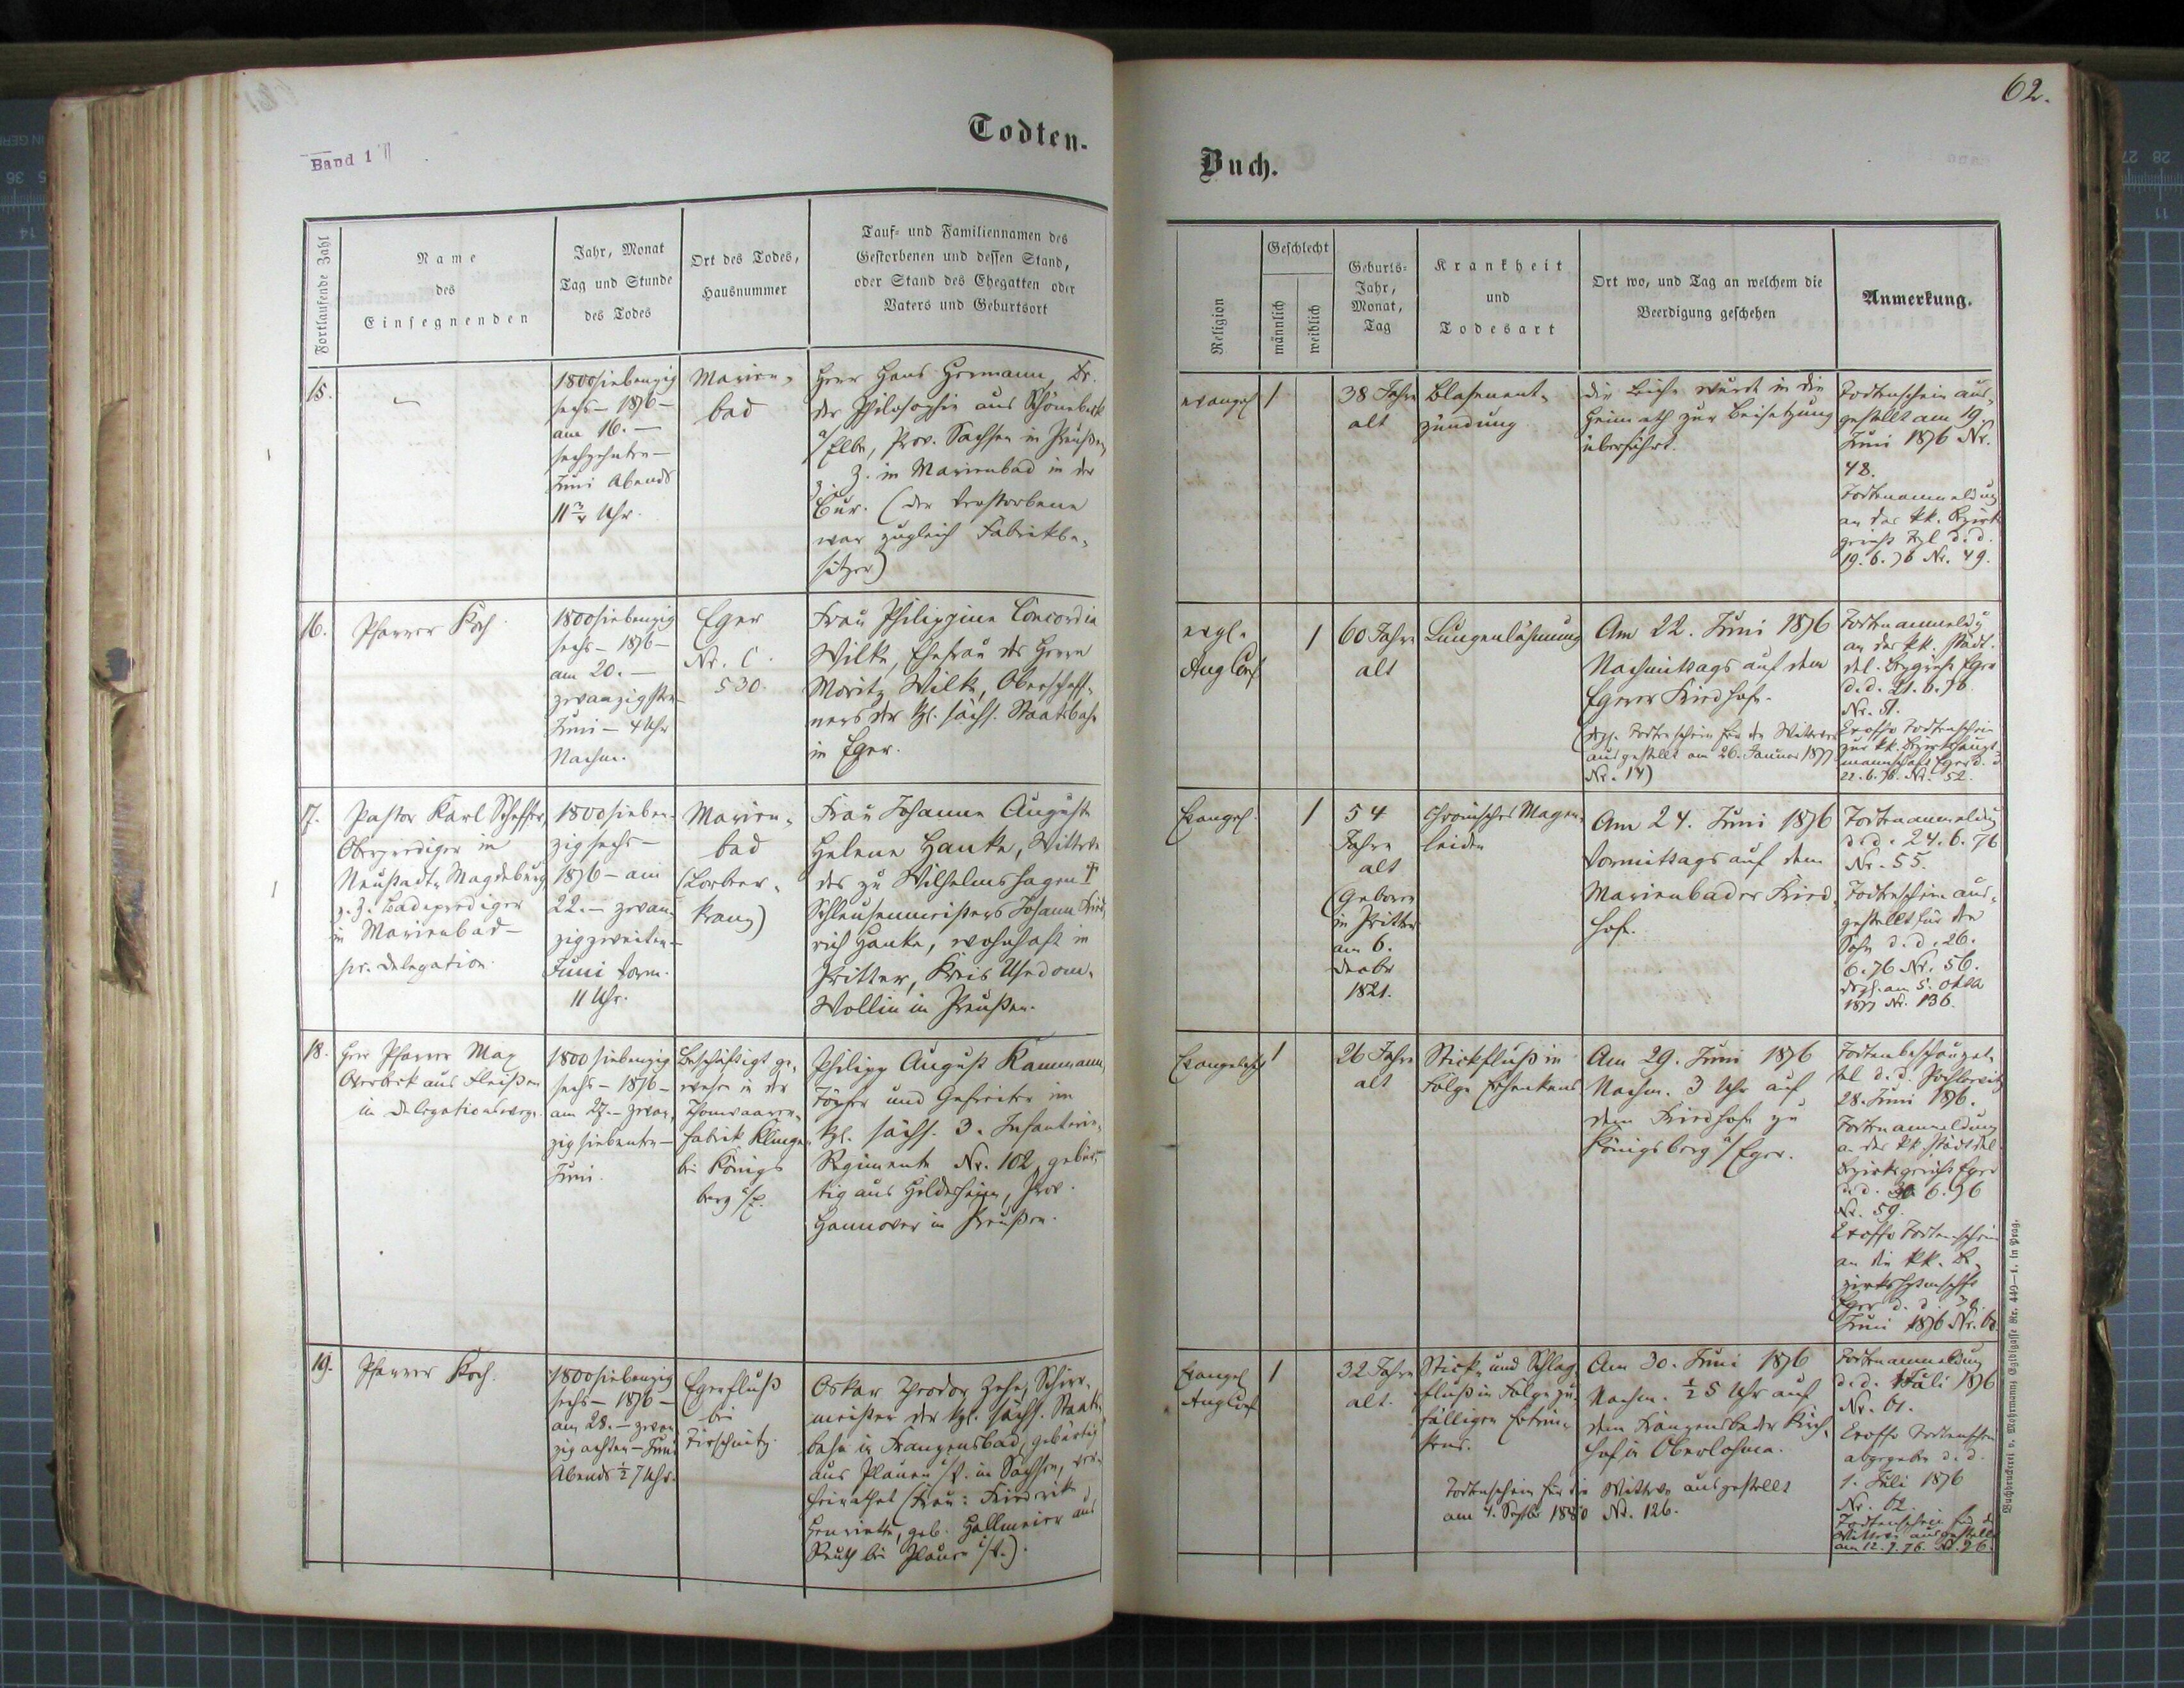 62.
Band 1
Todten-
Buch.
Fortlaufende Zahl
Name
des
Einsegnenden
Jahr, Monat
Tag und Stunde
des Todes
Ort des Todes,
Hausnummer
Tauf- und Familiennamen des
Gestorbenen und dessen Stand,
oder Stand des Ehegatten oder
Vaters und Geburtsort
Religion
Geschlecht
männlich
weiblich
Geburts-
Jahr,
Monat,
Tag
Krankheit
und
Todesart
Ort wo, und Tag an welchem die
Beerdigung geschehen
Anmerkung.
15.
1800siebenzig
sechs – 1876 –
am 16. –
sechzehnten –
Juni Abends
11 Uhr.
Marien-
bad
Herr Hans Hermann, Dr.
der Philosophie aus Schönebeck
a/Elbe, Prov. Sachsen in Preußen,
z. Z. in Marienbad in der
Cur. (der Verstorbene
war zugleich Fabriksbe-
sitzer)
evangel
1
38 Jahre
alt
Blasenent-
zündung
die Leiche wurde in die
Heimath zur Beisetzung
überführt.
Todtenschein aus-
gestellt am 19.
Juni 1876 Nr.
48.
Todtenanmeldung
an das kk. Bezirks
gericht d. d.
19. 6. 76 Nr. 49.
16.
Pfarrer Koch
1800siebenzig
sechs – 1876 –
am 20. –
zwanzigsten –
Juni – 4 Uhr
Nachm.
Eger
Nr. C.
530.
Frau Philippine Concordia
Wilke, Ehefrau des Herrn
Moritz Wilke, Oberschaff-
ners der kgl. sächs. Staatsbahn
in Eger.
evgl.
Augs Conf
1
60 Jahre
alt
Lungenlähmung
Am 22. Juni 1876
Nachmittags auf dem
Egerer Friedhofe.
(dgl. Todtenschein für den Wittwer
ausgestellt am 26. Januar 1877
Nr. 14)
Todtenanmeldg
an das kk. städt.
del. Bezgericht Eger
d. d. 21. 6. 76.
Nr. 51.
Exoffo Todtenschein
zur kk. Bezirkshaupt-
mannschaft Eger d. d
22. 6. 76. Nr. 52.
17.
Pastor Karl Scheffer,
Oberprediger in
Neustadt-Magdeburg
z. Z. Badeprediger
in Marienbad –
per Delegation.
1800sieben-
zigsechs –
1876 – am
22. – zwan-
zigzweiten –
Juni Vorm.
11 Uhr.
Marien-
bad
(Lorbeer-
kranz)
Frau Johanne Auguste
Helene Hanke, Wittwe
des zu Wilhelmshagen †
Schleusenmeisters Johann Fried
rich Hanke, wohnhaft in
Pritter, Kreis Usedom-
Wollin in Preußen.
Evangel.
1
54
Jahre
alt
(Geboren
in Pritter
am 6.
Decbr
1821.
Chronisches Magen-
leiden
Am 24. Juni 1876
Vormittags auf dem
Marienbader Fried-
hofe.
Todtenanmeldung
d. d. 24. 6. 76
Nr. 55.
Todtenschein aus-
gestellt für den
Sohn d. d. 26.
6. 76 Nr. 56.
dsgl. am 5. Oktb
1877 Nr. 136.
18.
Herr Pfarrer Max
Overbeck aus Fleißen
in Delegationswege
1800siebenzig
sechs – 1876 –
am 27. – zwan-
zigsiebenten –
Juni.
Beschäftigt ge-
wesen in der
Thonwaaren-
fabrik Klinge
bei Königs
berg a/E.
Philipp August Kammann,
Töpfer und Gefreiter im
kgl. sächs. 3. Infanterie-
Regimente Nr. 102, gebür-
tig aus Hildesheim, Prov.
Hannover in Preußen.
Evangelisch
1
26 Jahre
alt
Stickfluß in
Folge Ertrinkens
Am 29. Juni 1876
Nachm. 3 Uhr auf
dem Friedhofe zu
Königsberg a/Eger.
Todtenbeschauzet-
tel d. d.
28. Juni 1876.
Todtenanmeldung
an das kk städt del
Bezirksgericht Eger
d. d. 30. 6. 76
Nr. 59.
Exoffo Todtenschein
an die kk. Be-
zirkshptmschft
Eger d. d. 30.
Juni 1876 Nr. 60.
19.
Pfarrer Koch.
1800siebenzig
sechs – 1876 –
am 28. – zwan
zigachten – Juni
Abends ½ 7 Uhr.
Egerfluß
bei
Tirschnitz.
Oskar Theodor Zehe, Schirr-
meister der kgl. sächs. Staats-
bahn in Franzensbad, gebürtig
aus Plauen i/V. in Sachsen, ver-
heirathet (Frau: Friedrike
Henriette, geb. Hallmeier aus
Reuth bei Plauen i/V.).
Evangel
Augs Conf
1
32 Jahre
alt.
Stick- und Schlag-
fluß in Folge zu-
fälligen Ertrin-
kens.
Am 30. Juni 1876
Nachm. ½ 5 Uhr auf
dem Franzensbader Kirch-
hof in Oberlohma.
Todtenschein für die Wittwe ausgestellt
am 4. Septbr 1880 Nr. 126.
Todtenanmeldung
d. d. 1 Juli 1876
Nr. 61.
Exoffo Todtenschein
abgegeben d. d.
1. Juli 1876
Nr. 62.
Todtenschein für die
Wittwe ausgestellt
am 12. 9. 76. Nr. 96.
Buchdruckerei v. Mohrmann, Egidigasse Nr. 449–1. in Prag.